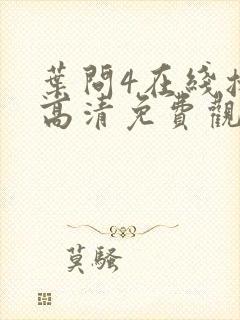 葉問4在綫
高清免費觀
莫騷